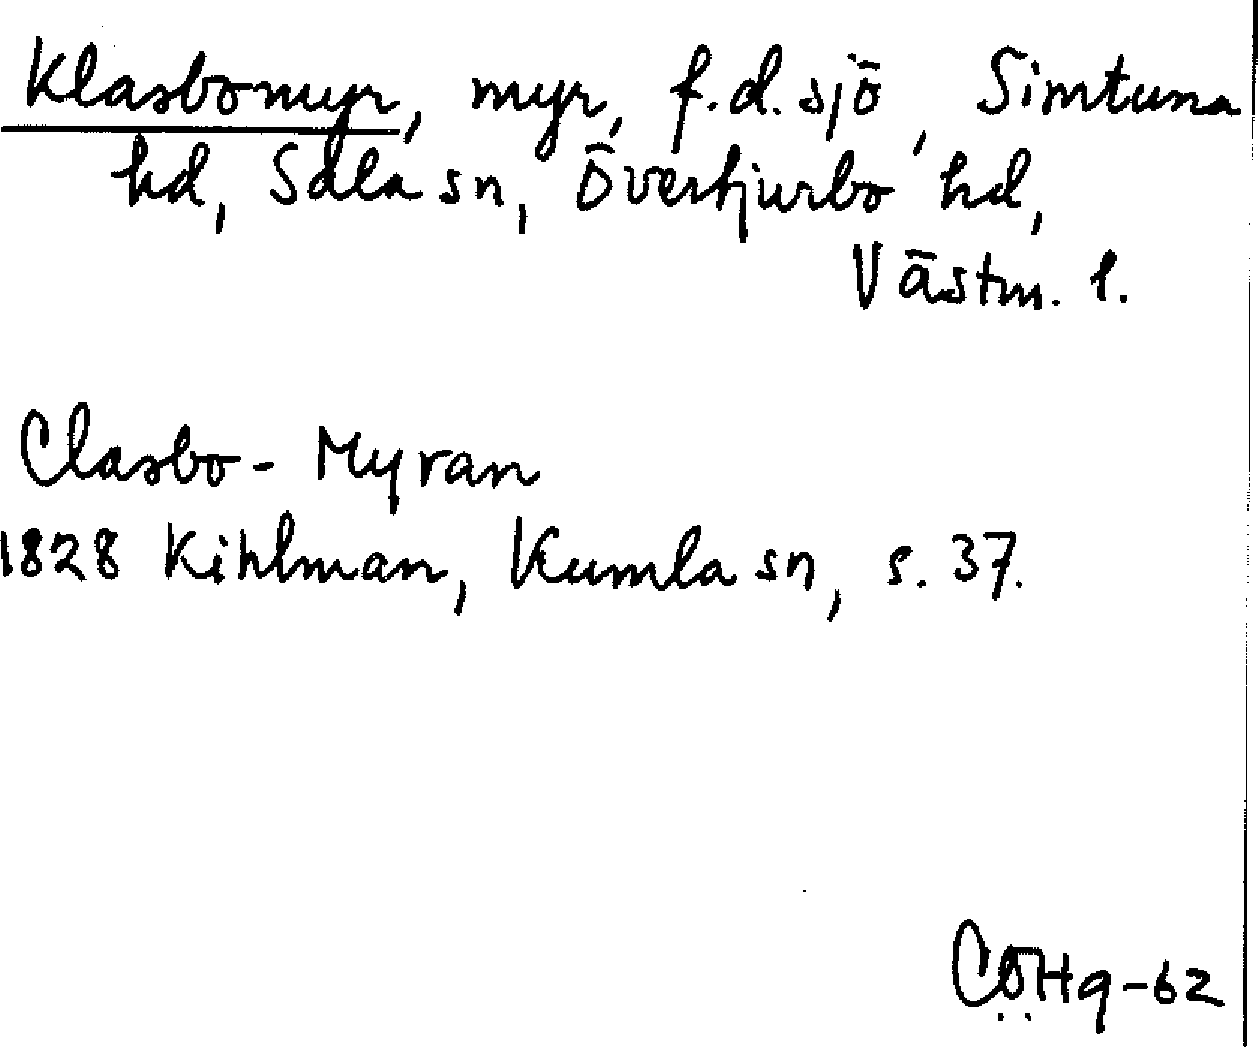 Klasbomyr, myr, f.d. sjö, Simtuna
hd, Sala sn, Övertjurbo hd,
Västm. l.
Clasbo-Myran
1828 Kihlman, Kumla sn, s. 37.
CÖHg-62